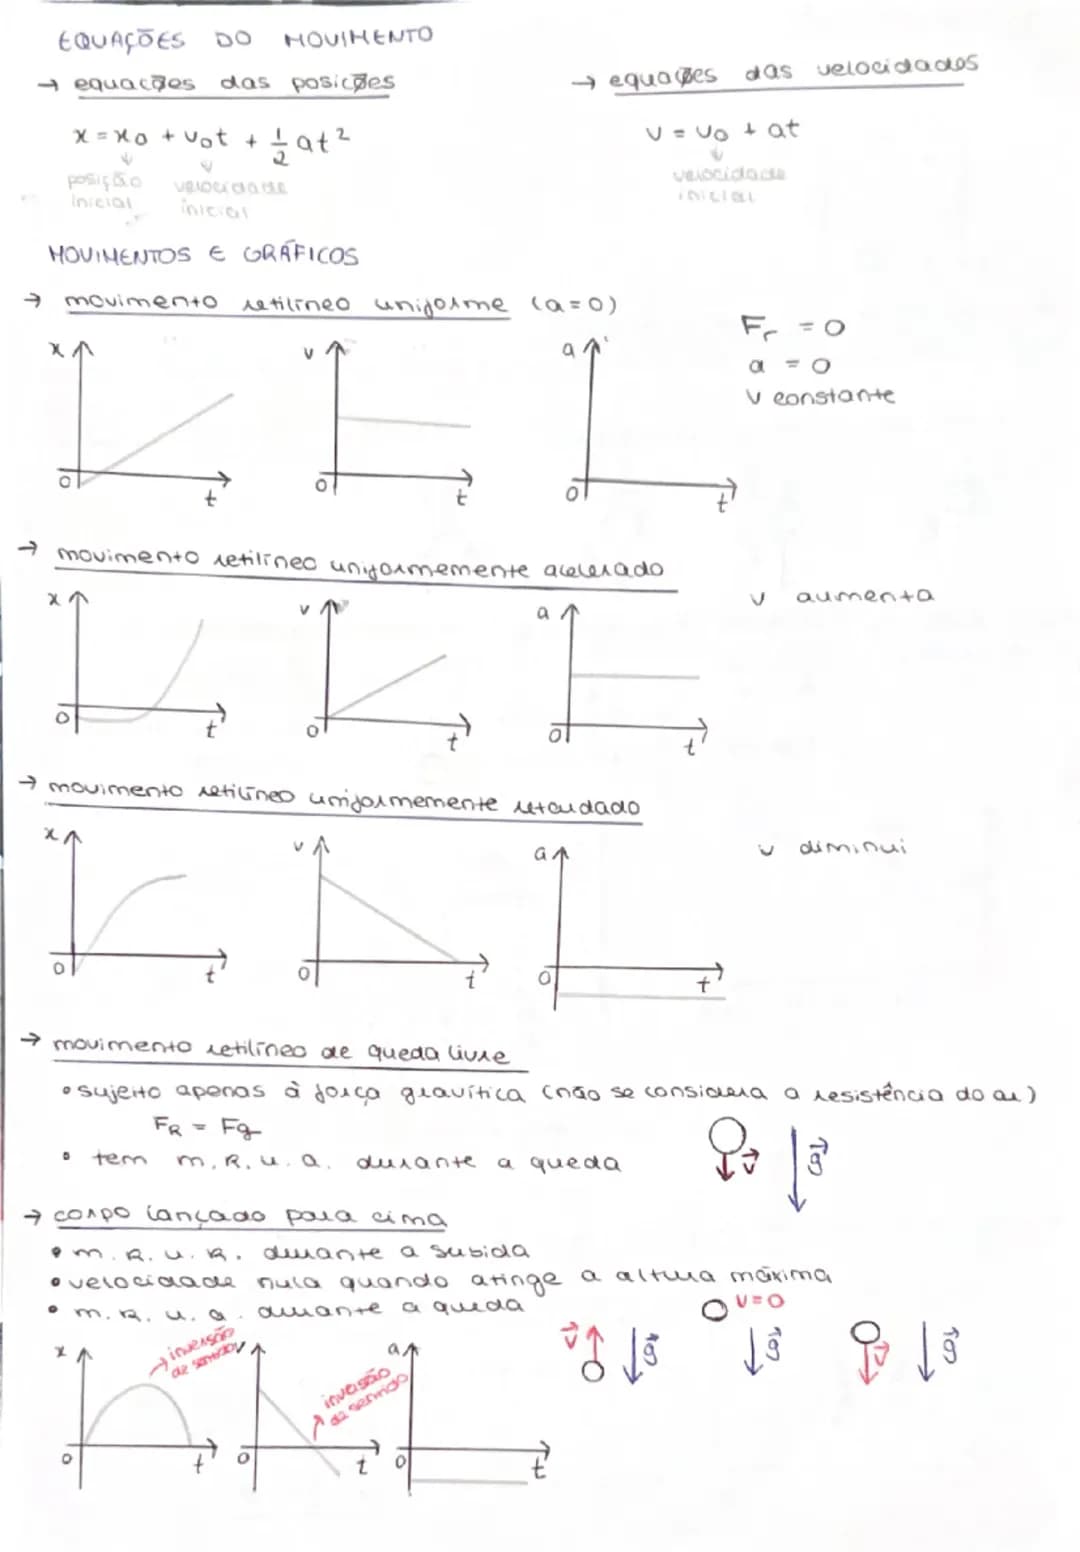 EQUAÇÕES DO MOVIMENTO
→ equações das posições
→ equações das velocidades
x = x0 + v0t + 1/2 at²
v = v0 + at
posição inicial
velocidade inicial
velocidade inicial
MOVIMENTOS E GRÁFICOS
→ movimento retilíneo uniforme (a=0)
x
0
t
v
0
t
a
0
t
Fr = 0
a = 0
v constante
→ movimento retilíneo uniformemente acelerado
x
0
t
v
0
t
a
0
t
v aumenta
→ movimento retilíneo uniformemente retardado
x
0
t
v
0
t
a
0
t
v diminui
→ movimento retilíneo de queda livre
• sujeito apenas à força gravítica (não se considera a resistência do ar)
FR = Fg
• tem m.R.u.a. durante a queda
v⃗
g⃗
→ corpo lançado para cima
• m.R.u.R. durante a subida
• velocidade nula quando atinge a altura máxima
• m.R.u.a. durante a queda
v⃗
g⃗
v=0
g⃗
v⃗
g⃗
x
0
t
→ inversão de sentido
v
0
t
inversão de sentido
a
0
t